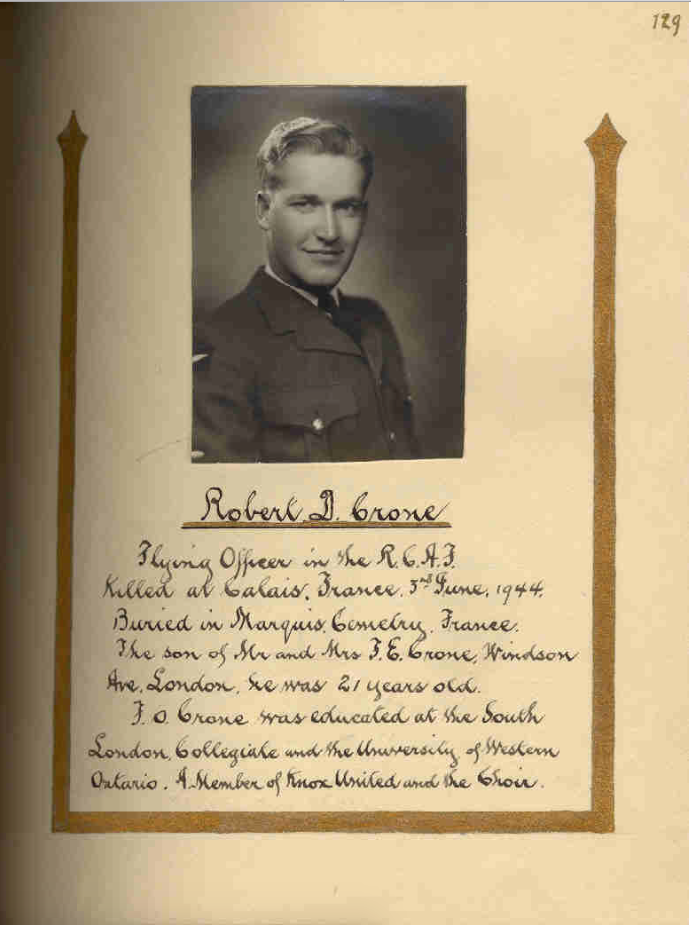 129
Robert D. Crone
Flying Officer in the R.C.A.F.
Killed at Calais, France, 3rd June, 1944.
Buried in Marquis, Cemetry, France.
The son of Mr and Mrs F. E. Crone, Windson
Ave, London, he was 21 years old.
F. O. Crone was educated at the South
London, Collegiate and the University of Western
Ontario. A Member of Knox United and the Choir.